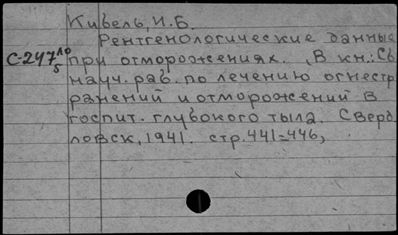 Кивель, И.Б.
Рентгенологические данные
С-247 10/5 при отморожениях. В кн.: Сб
науч. раб. по лечению огнестр
ранений и отморожений в
госпит. глубокого тыла. Сверд
ловск, 1941. стр. 441-446,